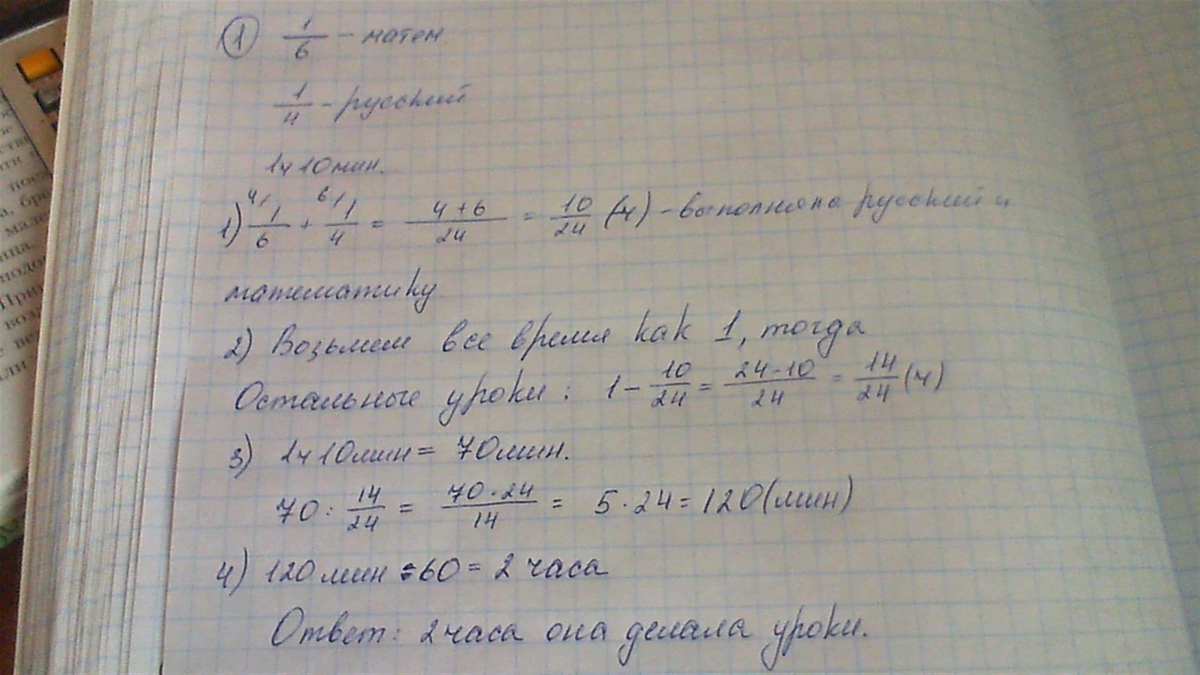 ① 1/6 - матем
1/4 - русский
1ч 10мин.
1) ⁴⁾1/6 + ⁶⁾1/4 = (4+6)/24 = 10/24 (ч) - выполняла русский и
математику
2) Возьмем все время как 1, тогда
Остальные уроки: 1 - 10/24 = (24-10)/24 = 14/24 (ч)
3) 1ч 10мин = 70мин.
70 : 14/24 = (70·24)/14 = 5·24 = 120 (мин)
4) 120 мин : 60 = 2 часа
Ответ: 2 часа она делала уроки.